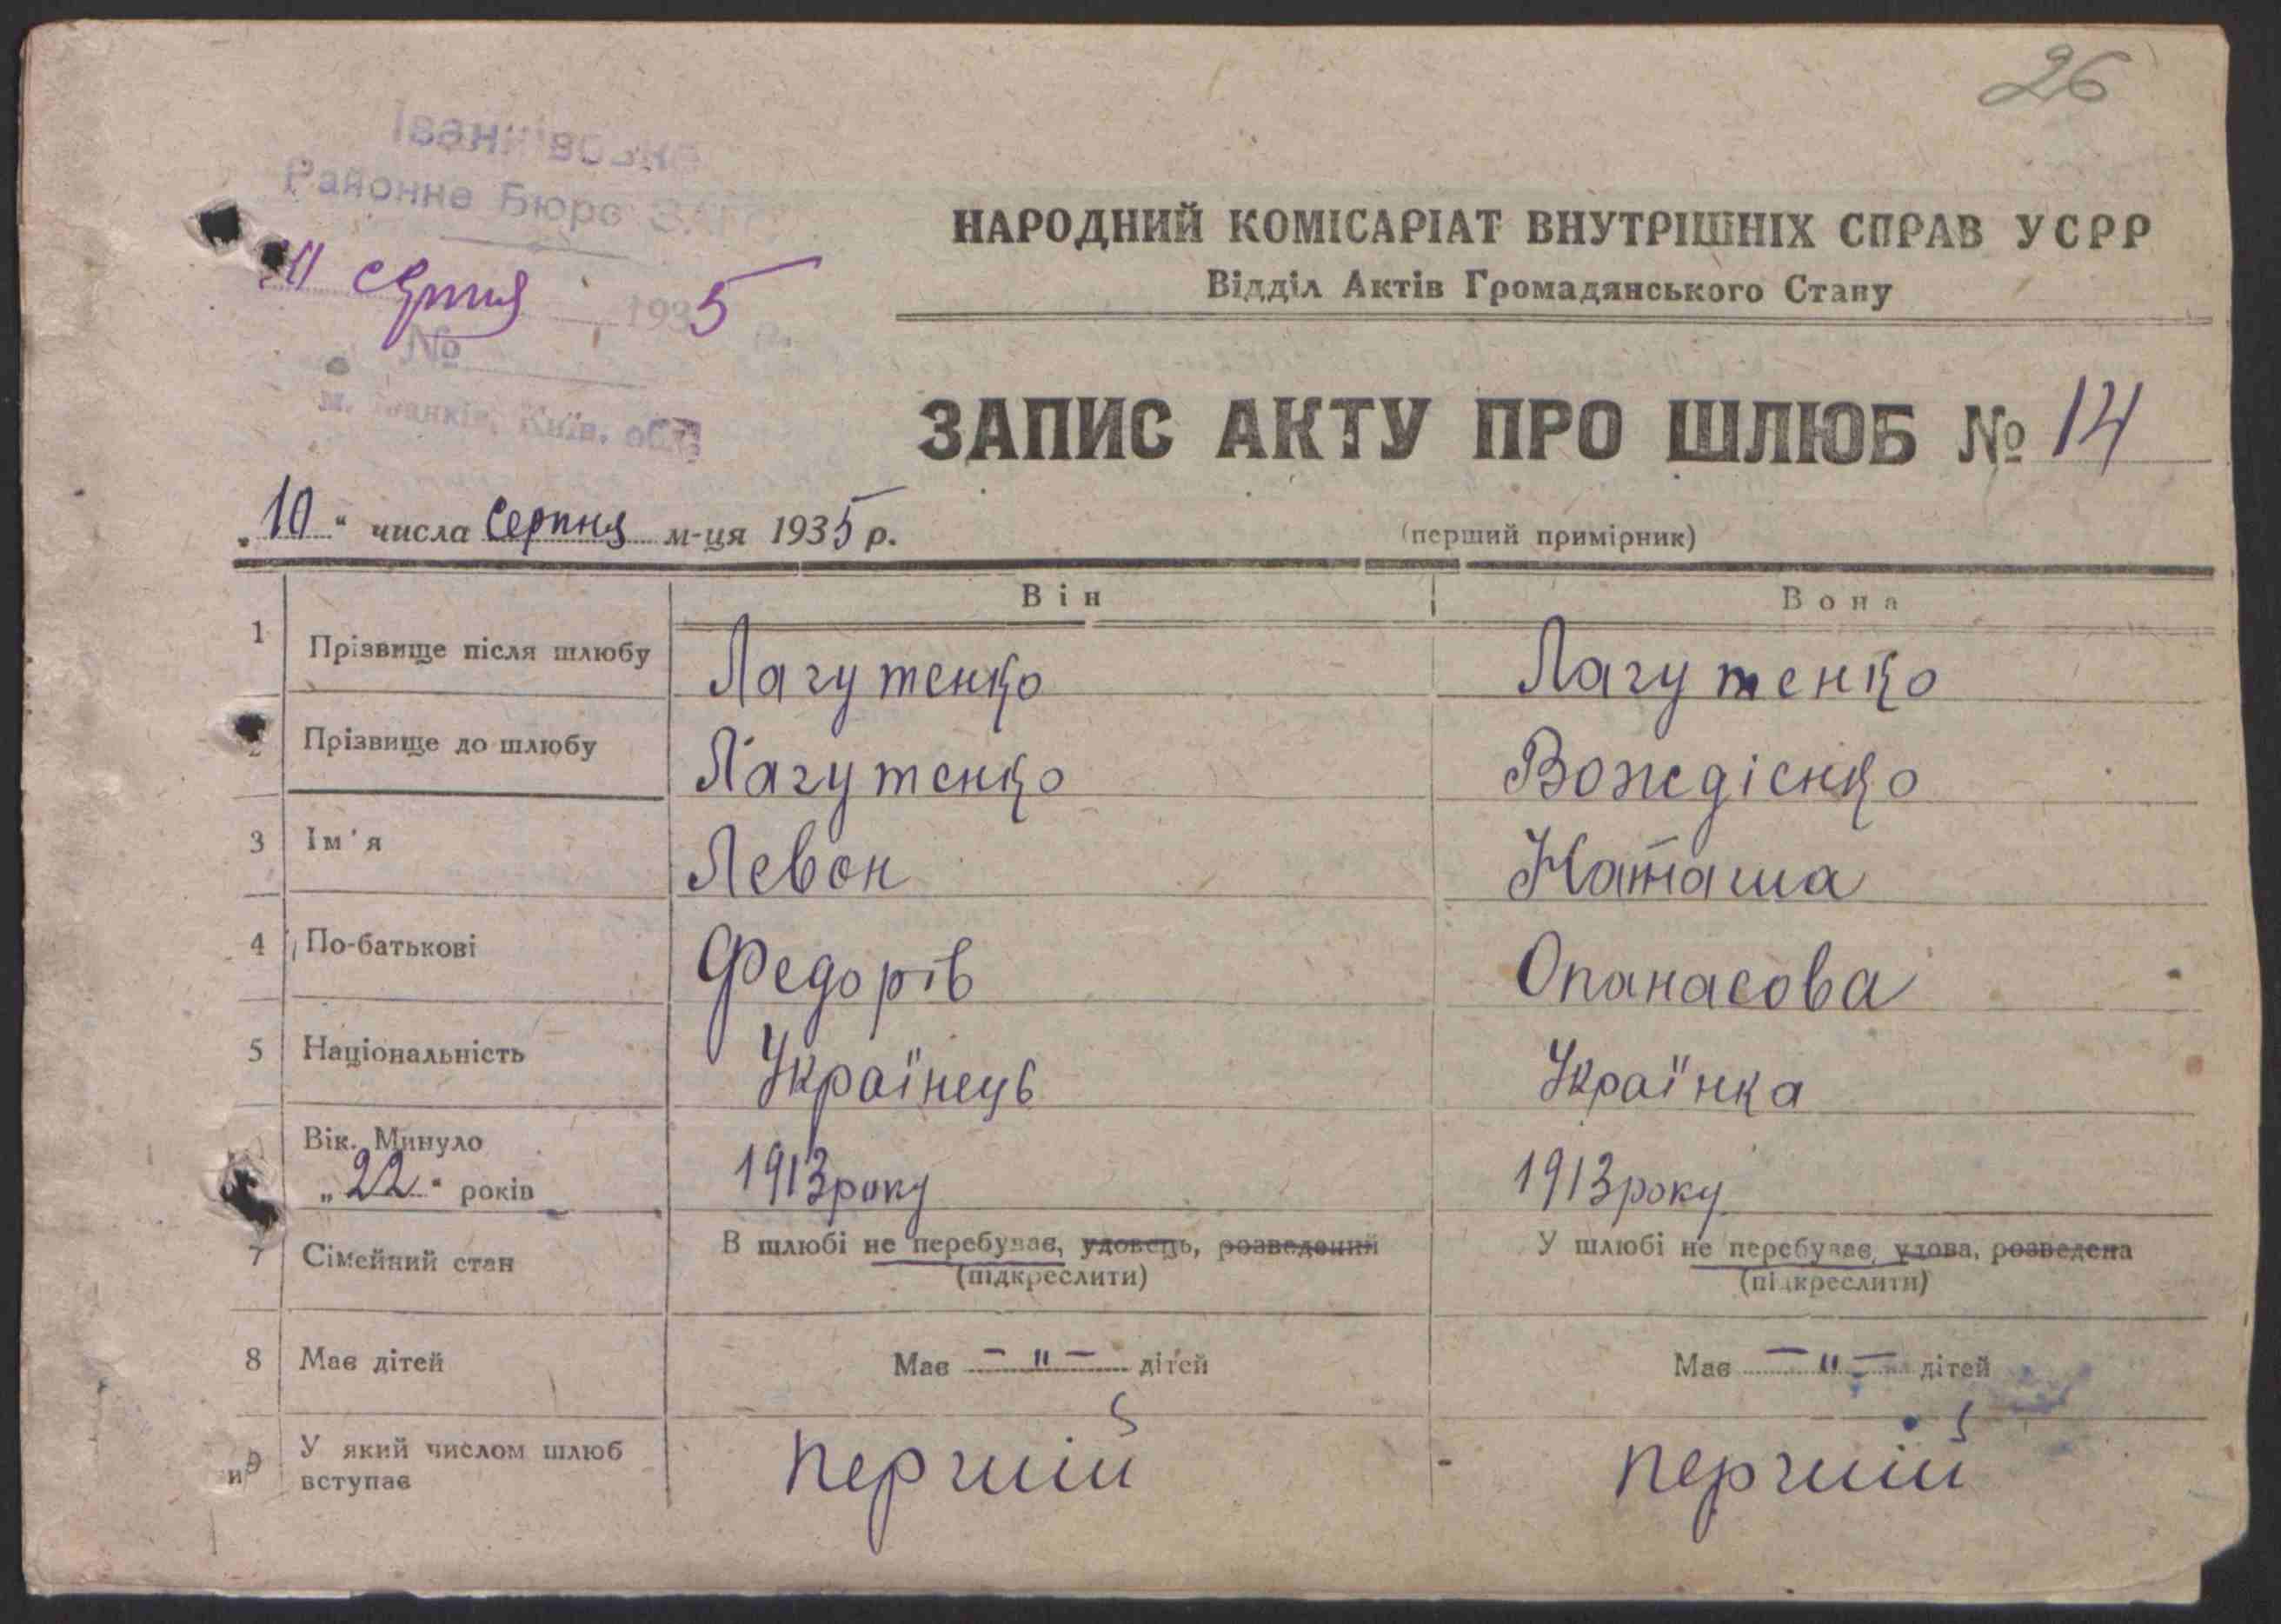 26
Іванківське
Районне Бюро ЗАГС
серпня 1935 р.
№
м. Іванків, Київ. обл.
НАРОДНИЙ КОМІСАРІАТ ВНУТРІШНІХ СПРАВ УСРР
Відділ Актів Громадянського Стану
ЗАПИС АКТУ ПРО ШЛЮБ № 14
„10“ числа серпня м-ця 1935 р.
(перший примірник)
Він Вона
1 Прізвище після шлюбу Лагутенко Лагутенко
2 Прізвище до шлюбу Лагутенко Вождієнко
3 Ім'я Левон Наташа
4 По-батькові Федорів Опанасова
5 Національність Українець Українка
Вік. Минуло
„22“ років 1913 року 1913 року
7 Сімейний стан В шлюбі не перебуває, удовець, розведений У шлюбі не перебуває, удова, розведена
(підкреслити) (підкреслити)
8 Має дітей Має – " – дітей Має – " – дітей
9 У який числом шлюб
вступає перший перший